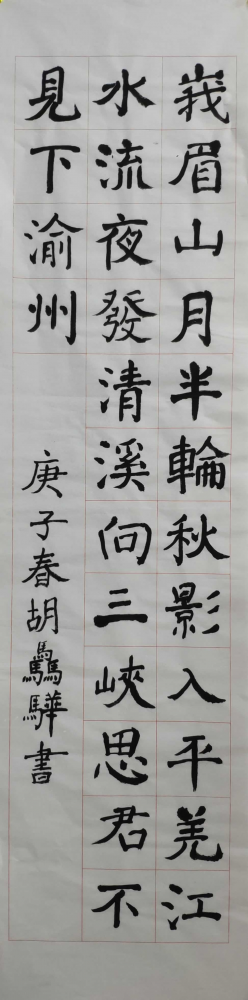 峩眉山月半輪秋影入平羌江
水流夜發清溪向三峽思君不
見下渝州
庚子春胡驫驊書